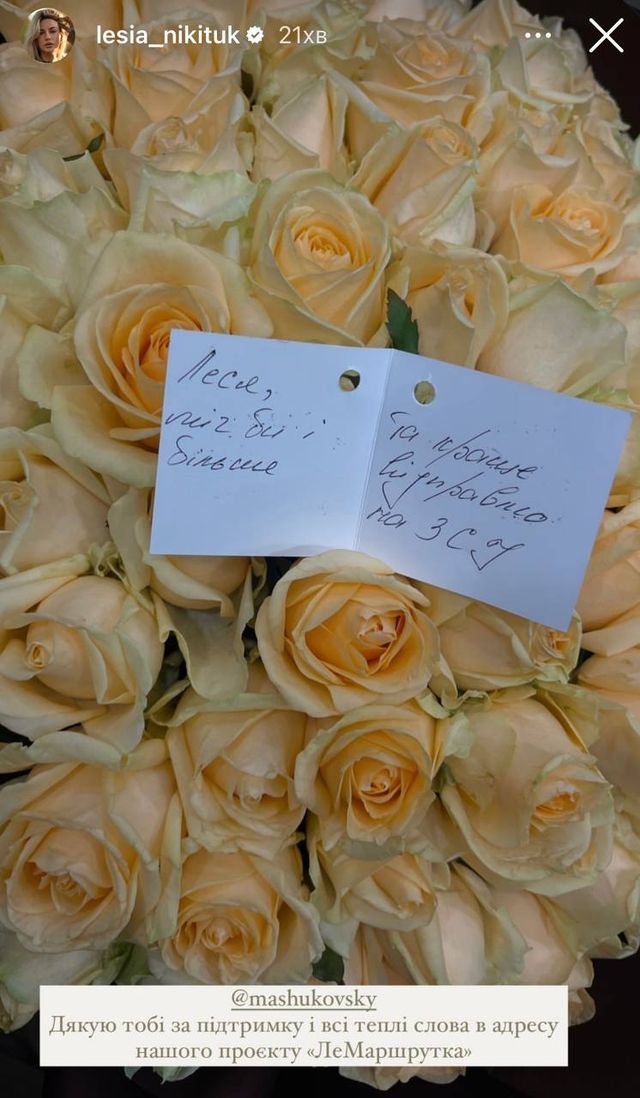 lesia_nikituk 21хв
Леся,
міг би і
більше
Та краще
відправлю
на ЗСУ
@mashukovsky
Дякую тобі за підтримку і всі теплі слова в адресу
нашого проєкту «ЛеМаршрутка»